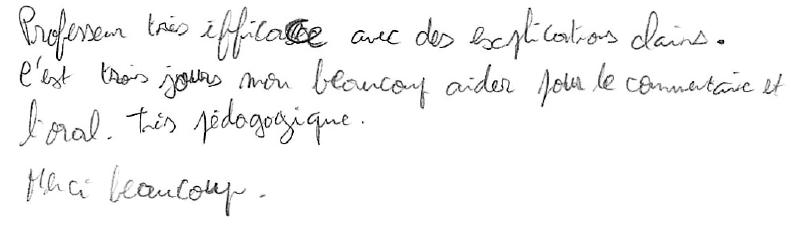 Professeur très efficace avec des explications clairs.
C'est trois jours mon beaucoup aider pour le commentaire et
l'oral. très pédagogique.
Merci beaucoup.